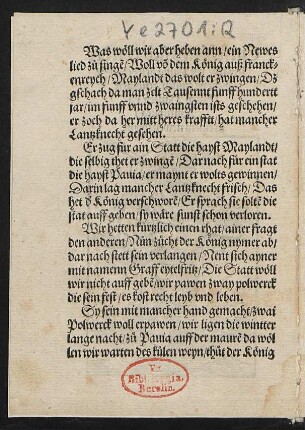 Ye 2701:Q
Was wöll wir aber heben ann / ein Newes
lied zů singē / Woll vō dem König auß franck-
enreych / Maylandt das wolt er zwingen / Dz
gschach da man zelt Tausennt funff hundertt
jar / im funff vnnd zwaingsten ists geschehen /
er zoch da her mitt heres krafft / hat mancher
Lantzknecht gesehen.
Er zug für ain Statt die hayst Maylandt /
die selbig thet er zwingē / Dar nach für ein stat
die hayst Pauia / er maynt er wolts gewinnen /
Darin lag mancher Lantzknecht frisch / Das
het ď König verschworē / Er sprach sie soltē die
stat auff geben / sy wäre sunst schon verloren.
Wir hetten kürtzlich einen rhat / ainer fragt
den anderen / Nün zücht der König nymer ab /
dar nach stett sein verlangen / Nent sich ayner
mit namenn Graff eytelfritz / Die Statt wöll
wir nicht auff gebē / wir pawen zway polwerck
die sein fest / es kost recht leyb vnd leben.
Sy sein mit mancher hand gemacht / zwai
Polwerck woll erpawen / wir ligen die wintter
lange nacht / zů Pauia auff der maurē da wöl
len wir warten des külen weyn / thüt der König
Bibliotheca.
Berolin.